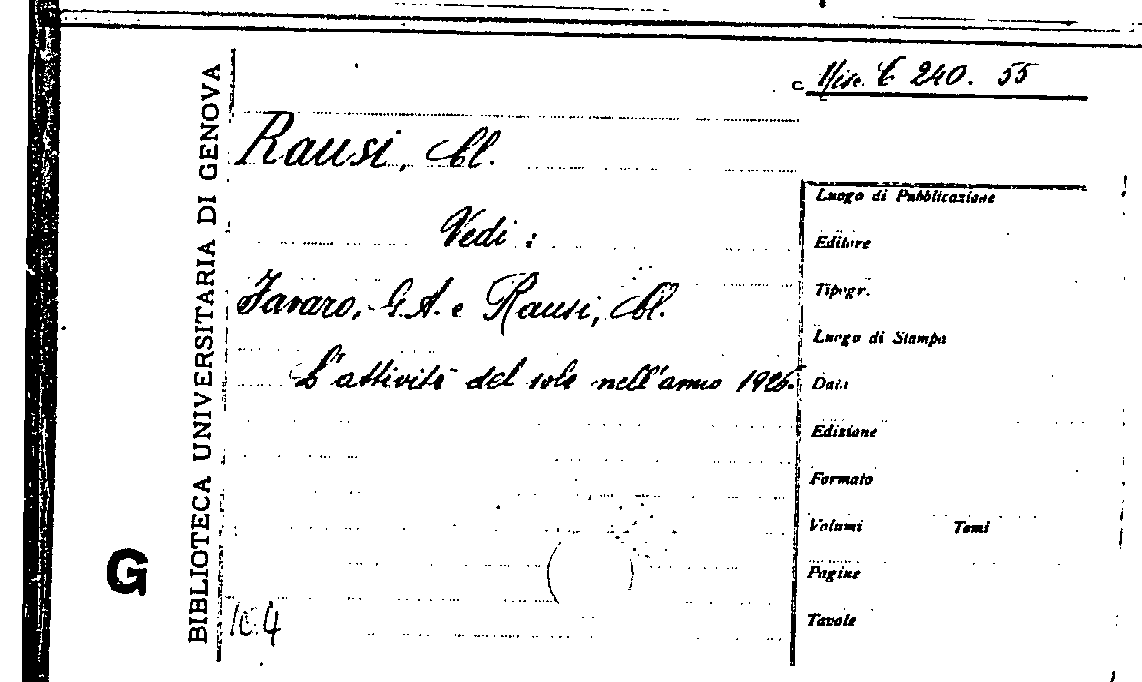 Misc. C 240. 55
Rausi, Cl.
Vedi :
Favaro, G.A. e Rausi, Cl.
L'attività del sole nell'anno 1926.
Luogo di Pubblicazione
Editore
Tipogr.
Luogo di Stampa
Data
Edizione
Formato
Volumi Tomi
Pagine
Tavole
BIBLIOTECA UNIVERSITARIA DI GENOVA
G